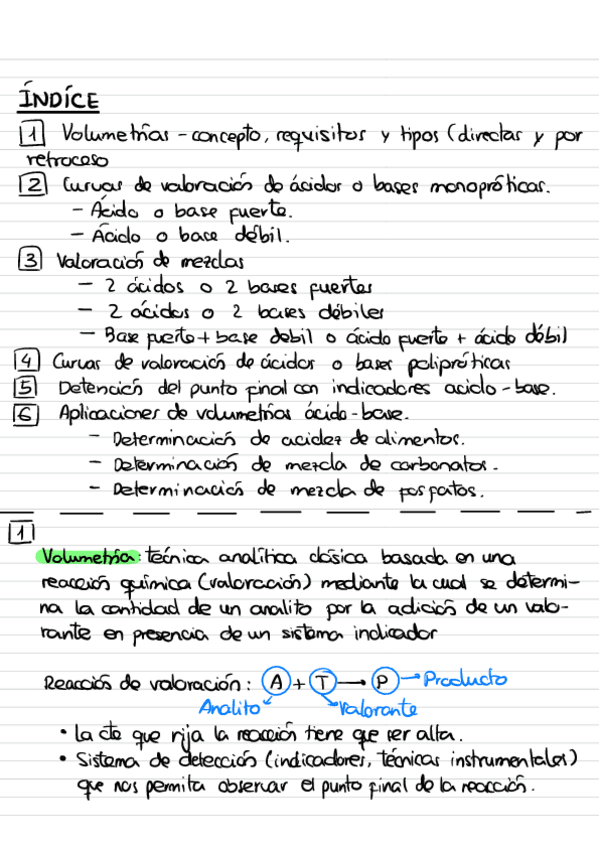 ÍNDÍCE
1 Volumetrías - concepto, requisitos y tipos (directas y por
retroceso
2 Curvas de valoración de ácidos o bases monopróticas.
- Ácido o base fuerte.
- Ácido o base débil.
3 Valoración de mezclas
- 2 ácidos o 2 bases fuertes
- 2 ácidos o 2 bases débiles
- Base fuerte + base debil o ácido fuerte + ácido débil
4 Curvas de valoración de ácidos o bases polipróticas
5 Detención del punto final con indicadores acido-base.
6 Aplicaciones de volumetrías ácido-base.
- Determinación de acidez de alimentos.
- Determinación de mezcla de carbonatos.
- Determinación de mezcla de fosfatos.
1
Volumetría: técnica analítica clásica basada en una
reacción química (valoración) mediante la cual se determi-
na la cantidad de un analito por la adición de un valo-
rante en presencia de un sistema indicador
Reacción de valoración: A + T → P → Producto
Analito Valorante
• La cte que rija la reacción tiene que ser alta.
• Sistema de detección (indicadores, técnicas instrumentales)
que nos permita observar el punto final de la reacción.